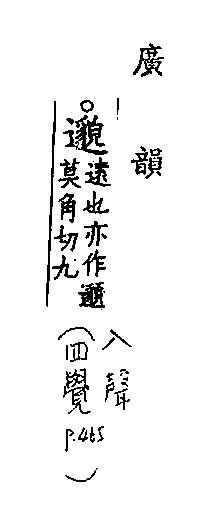 廣韻
○邈
遠也亦作
莫角切九
入聲
(四覺
p.465)